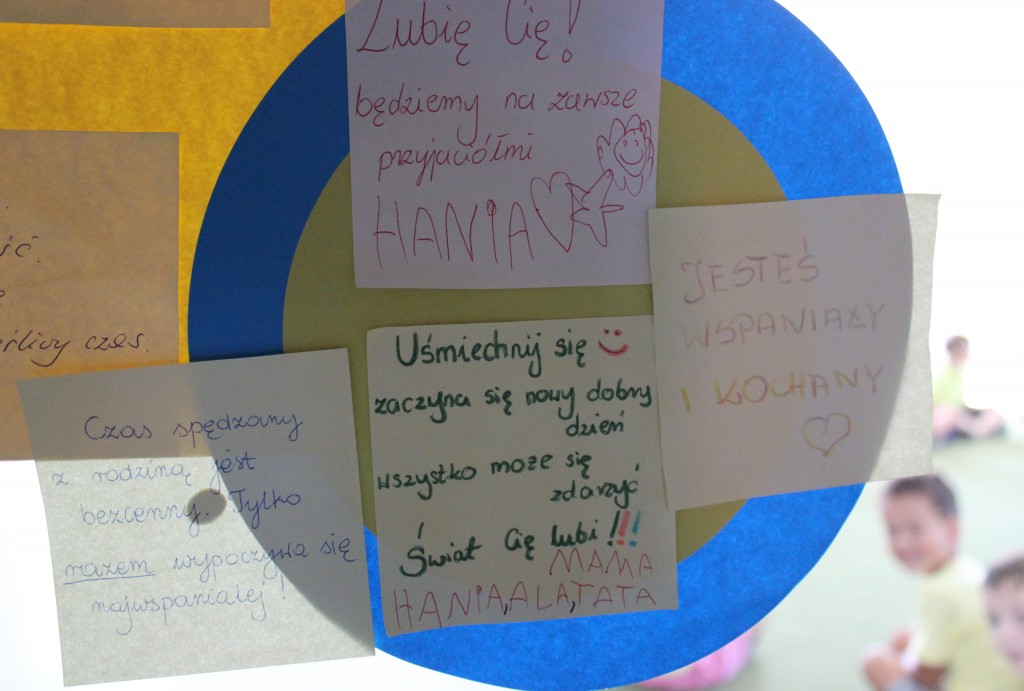 Lubię Cię!
będziemy na zawsze
przyjaciółmi
HANIA
ić.
czas.
JESTEŚ
WSPANIAŁY
I KOCHANY
Uśmiechnij się
zaczyna się nowy dobry
dzień
wszystko może się
zdarzyć
Świat Cię lubi!!!
MAMA
HANIA, ALA, TATA
Czas spędzany
z rodziną jest
bezcenny. Tylko
razem wypoczywa się
najwspanialej!